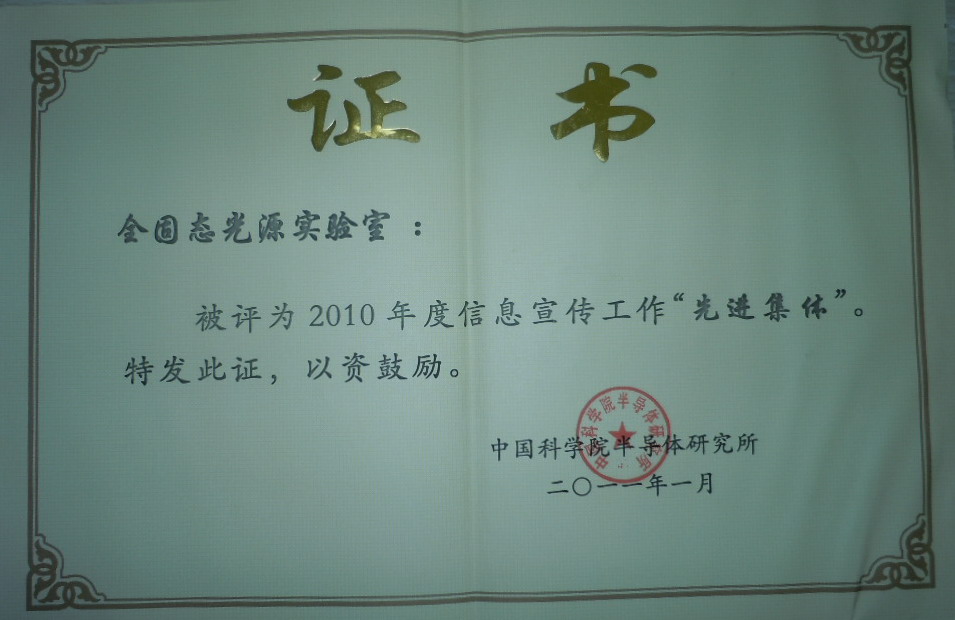 证书
全固态光源实验室：
被评为2010年度信息宣传工作“先进集体”。
特发此证，以资鼓励。
中国科学院半导体研究所
中国科学院半导体研究所
二〇一一年一月